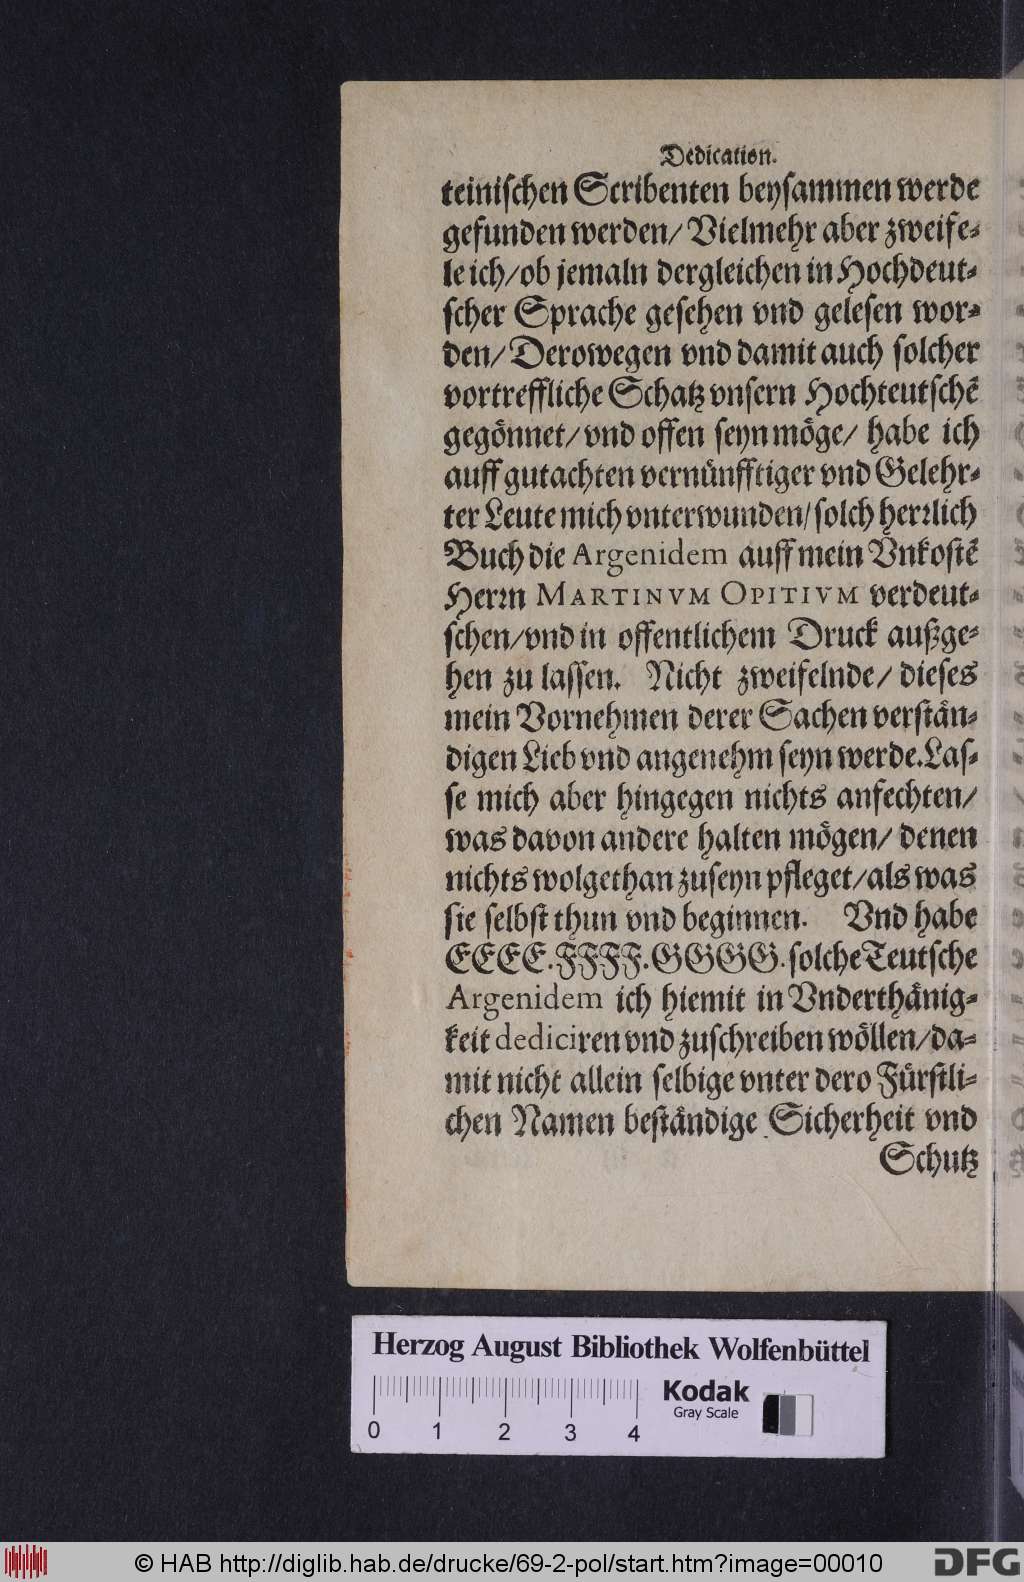 Dedication.
teinischen Scribenten beysammen werde
gefunden werden/ Vielmehr aber zweife-
le ich/ ob jemaln dergleichen in Hochdeut-
scher Sprache gesehen vnd gelesen wor-
den/ Derowegen vnd damit auch solcher
vortreffliche Schatz vnsern Hochteutschẽ
gegoͤnnet/ vnd offen seyn moͤge/ habe ich
auff gutachten vernuͤnfftiger vnd Gelehr-
ter Leute mich vnterwunden/ solch herꝛlich
Buch die Argenidem auff mein Vnkostẽ
Herꝛn MARTINVM OPITIVM verdeut-
schen/ vnd in offentlichem Druck außge-
hen zu lassen. Nicht zweifelnde/ dieses
mein Vornehmen derer Sachen verstaͤn-
digen Lieb vnd angenehm seyn werde. Las-
se mich aber hingegen nichts anfechten/
was davon andere halten moͤgen/ denen
nichts wolgethan zuseyn pfleget/ als was
sie selbst thun vnd beginnen. Vnd habe
EEEE. FFFF. GGGG. solche Teutsche
Argenidem ich hiemit in Vnderthaͤnig-
keit dediciren vnd zuschreiben woͤllen/ da-
mit nicht allein selbige vnter dero Fuͤrstli-
chen Namen bestaͤndige Sicherheit vnd
Schutz
Herzog August Bibliothek Wolfenbüttel
Kodak
Gray Scale
0 1 2 3 4
© HAB http://diglib.hab.de/drucke/69-2-pol/start.htm?image=00010
DFG